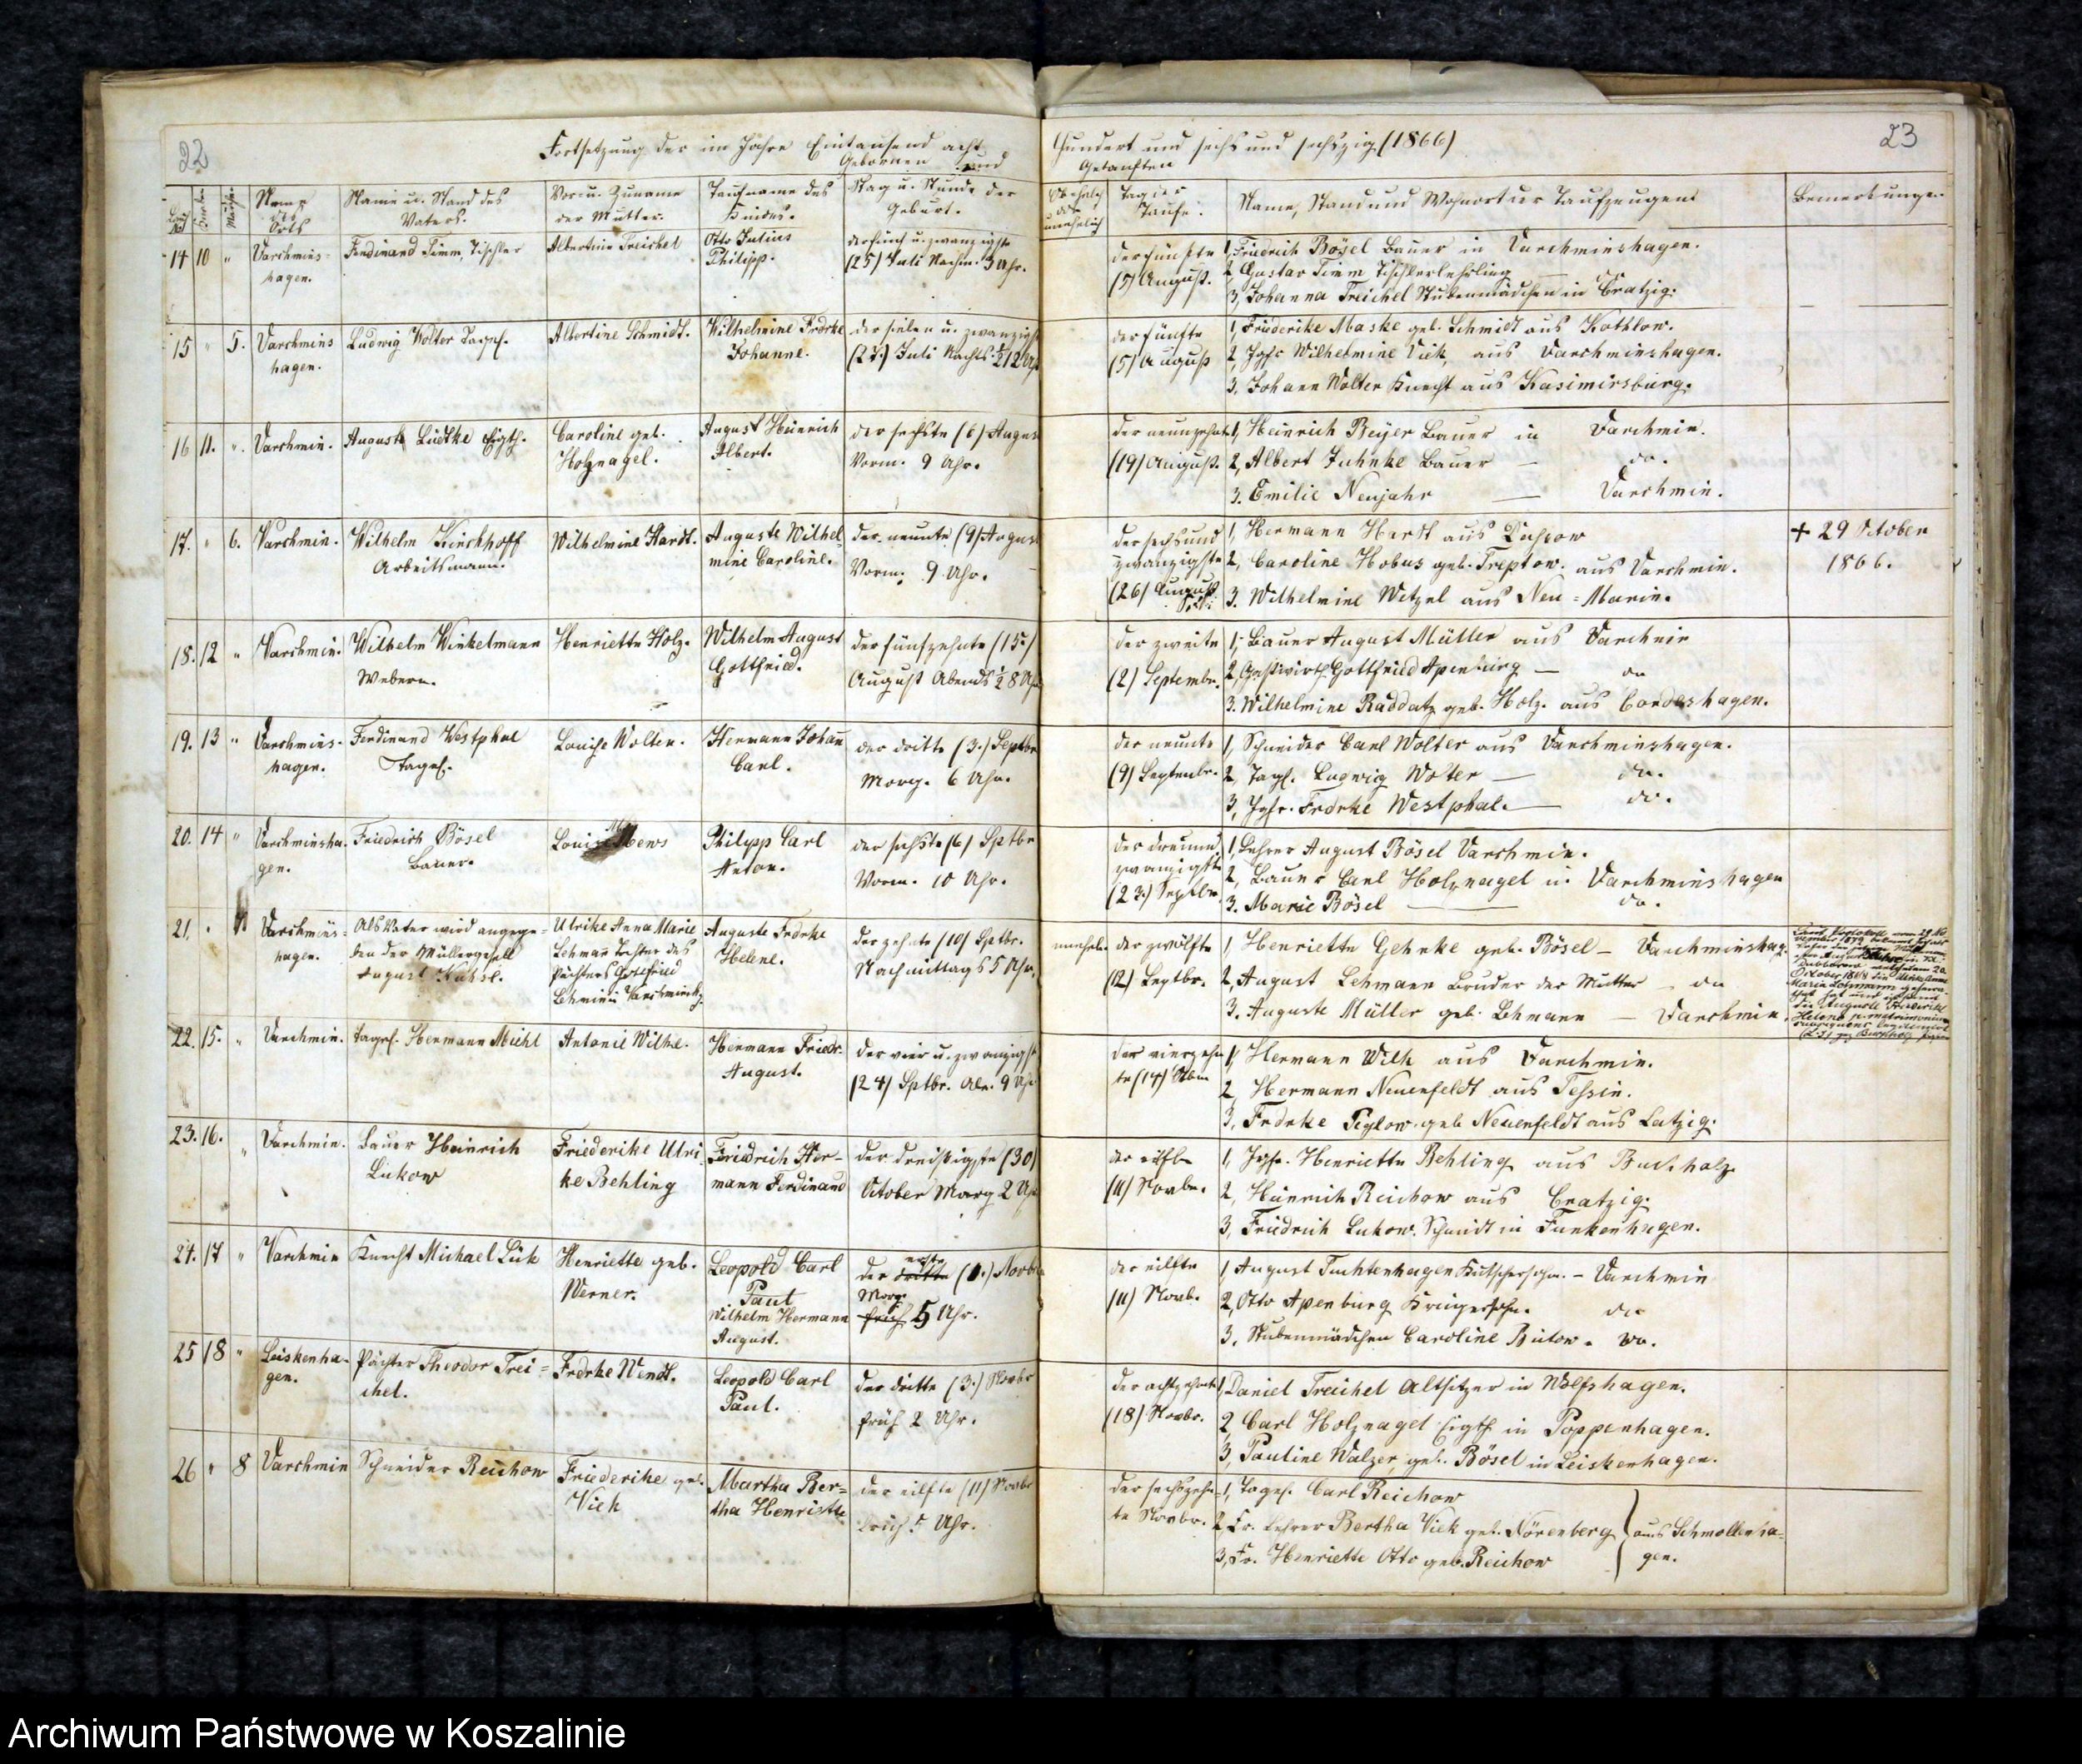 22
Fortsetzung der im Jahre Eintausend acht
Gebornen und
Hundert und sechs und sechszig (1866)
Getauften
23
Name des Orts
Name u. Stand des Vaters.
Vor- u. Zuname der Mutter.
Taufname des Kindes.
Tag u. Stunde der Geburt.
Ehelich oder unehelich
Tag der Taufe.
Name, Stand und Wohnort der Taufzeugen
Bemerkungen
14 10 " Varchmins-
hagen.
Ferdinand Timm, Tischler
Albertine Treichel
Otto Julius
Philipp.
der fünf u. zwanzigste
(25) Juli Nachm. 3 Uhr.
der fünfte
(5) August.
1, Friedrich Bösel Bauer in Varchminshagen.
2, Gustav Timm Tischlerlehrling
3, Johanna Treichel Stubenmädchen in Cratzig.
15 " 5. Varchmins
hagen.
Ludwig Wolter Tagel.
Albertine Schmidt.
Wilhelmine Frdrke
Johanne.
der sieben u. zwanzigste
(27.) Juli Nachts ½12 Uhr
der fünfte
(5) August
1, Friederike Maske geb. Schmidt aus Kothlow.
2, Jgfr Wilhelmine Viek, aus Varchminshagen.
3, Johann Wolter Knecht aus Kasimirsburg.
16 11. ". Varchmin.
August Lüdtke Eigth.
Caroline geb.
Holznagel.
August Heinrich
Albert.
der sechste (6) August
Vorm. 9 Uhr.
der neunzehnte
(19) August.
1, Heinrich Beyer Bauer in Varchmin.
2, Albert Juhnke Bauer — do.
3. Emilie Neujahr — Varchmin.
17. " 6. Varchmin.
Wilhelm Kirchhoff
Arbeitsmann.
Wilhelmine Hardt.
Auguste Wilhel-
mine Caroline.
der neunte (9) August
Vorm. 9 Uhr.
der sechs und
zwanzigste
(26) August
1, Hermann Hardt aus
2, Caroline Hobus geb. Treptow. aus Varchmin.
3. Wilhelmine Wetzel aus Neu-Marin.
+ 29 October
1866.
18. 12 " Varchmin.
Wilhelm Winkelmann
Webern.
Henriette Holz.
Wilhelm August
Gottfried.
der fünfzehnte (15.)
August Abends ½8 Uhr
der zweite
(2) Septembr.
1, Bauer August Müller aus Varchmin
2, Gastwirth Gottfried Apenburg — do
3. Wilhelmine Raddatz geb. Holz. aus Cordeshagen.
19. 13 " Varchmins-
hagen.
Ferdinand Westphal
Tagel.
Louise Wolter.
Hermann Johann
Carl.
der dritte (3.) Septbr
Morg. 6 Uhr.
der neunte
(9) Septembr.
1, Schneider Carl Wolter aus Varchminshagen.
2, Tagel. Ludwig Wolter — do.
3, Jgfr. Frdrke Westphal. — do.
20. 14 " Varchminsha-
gen.
Friedrich Bösel
Bauer.
Louise Mews
Philipp Carl
Anton.
der sechste (6) Sptbr
Vorm. 10 Uhr.
der drei und
zwanzigste
(23.) Septbr.
1, Lehrer August Bösel Varchmin.
2, Bauer Carl Holznagel in Varchminshagen
3. Marie Bösel — do.
21. " Varchmins-
hagen.
Als Vater wird angege-
ben der Müllergesell
August
Ulrike Anna Marie
Lehmann Tochter des
Pächters Gottfried
Lehmann
Auguste Frdrke
Helene.
der zehnte (10) Sptbr.
Nachmittags 5 Uhr.
unehel.
der zwölfte
(12) Septbr.
1, Henriette Gehrke geb. Bösel — Varchminshag.
2, August Lehmann Bruder der Mutter — do
3. Auguste Müller geb. Lehmann — Varchmin.
22. 15. " Varchmin.
Tagel. Hermann Miehl
Antonie Wilke.
Hermann Friedr.
August.
der vier u. zwanzigste
(24) Sptbr. Ab. 9 Uhr
der vierzehn
te (14)
1, Hermann Wilk aus Varchmin.
2, Hermann Neuenfeldt aus Tessin.
3, Frdrke geb Neuenfeldt aus Latzig.
23. 16. " Varchmin.
Bauer Heinrich
Lukow
Friederike Ulri-
ke Behling
Friedrich Her-
mann Ferdinand
der dreißigste (30)
October Morg 2 Uhr
der eilfte
(11) Novbr.
1, Jgfr. Henriette Behling aus Buchholz
2, Heinrich Reichow aus Cratzig.
3, Friedrich Lukow. Schmidt in Funkenhagen.
24. 17 " Varchmin
Knecht Michael Lük
Henriette geb.
Werner.
Leopold Carl
Paul
Wilhelm Hermann
August.
erste
der dritte (1.) Novbr
Morg.
früh 5 Uhr.
der eilfte
(11) Novb.
1, August Tuchtenhagen Kutschersohn. — Varchmin
2, Otto Apenburg Krügersohn. do
3, Stubenmädchen Caroline Bütow. do.
25 18 " Leiskenha-
gen.
Pächter Theodor Trei-
chel.
Frdrke Wendt.
Leopold Carl
Paul.
der dritte (3.) Novbr
früh 2 Uhr.
der achtzehnte
(18) Novbr.
1, Daniel Treichel Altsitzer in Wolfshagen.
2, Carl Holznagel Eigth in Poppenhagen.
3, Pauline Walzer geb. Bösel in Leiskenhagen.
26 " 8 Varchmin
Schneider Reichow
Friederike geb.
Viek
Martha Ber-
tha Henriette
der eilfte (11) Novbr
früh 5 Uhr.
der sechszehn-
te Novbr.
1, Tagel. Carl Reichow
2, Fr. Lehrer Bertha Viek geb. Nörenberg
3, Fr. Henriette Otto geb. Reichow
aus Schmollenha-
gen.
Archiwum Państwowe w Koszalinie